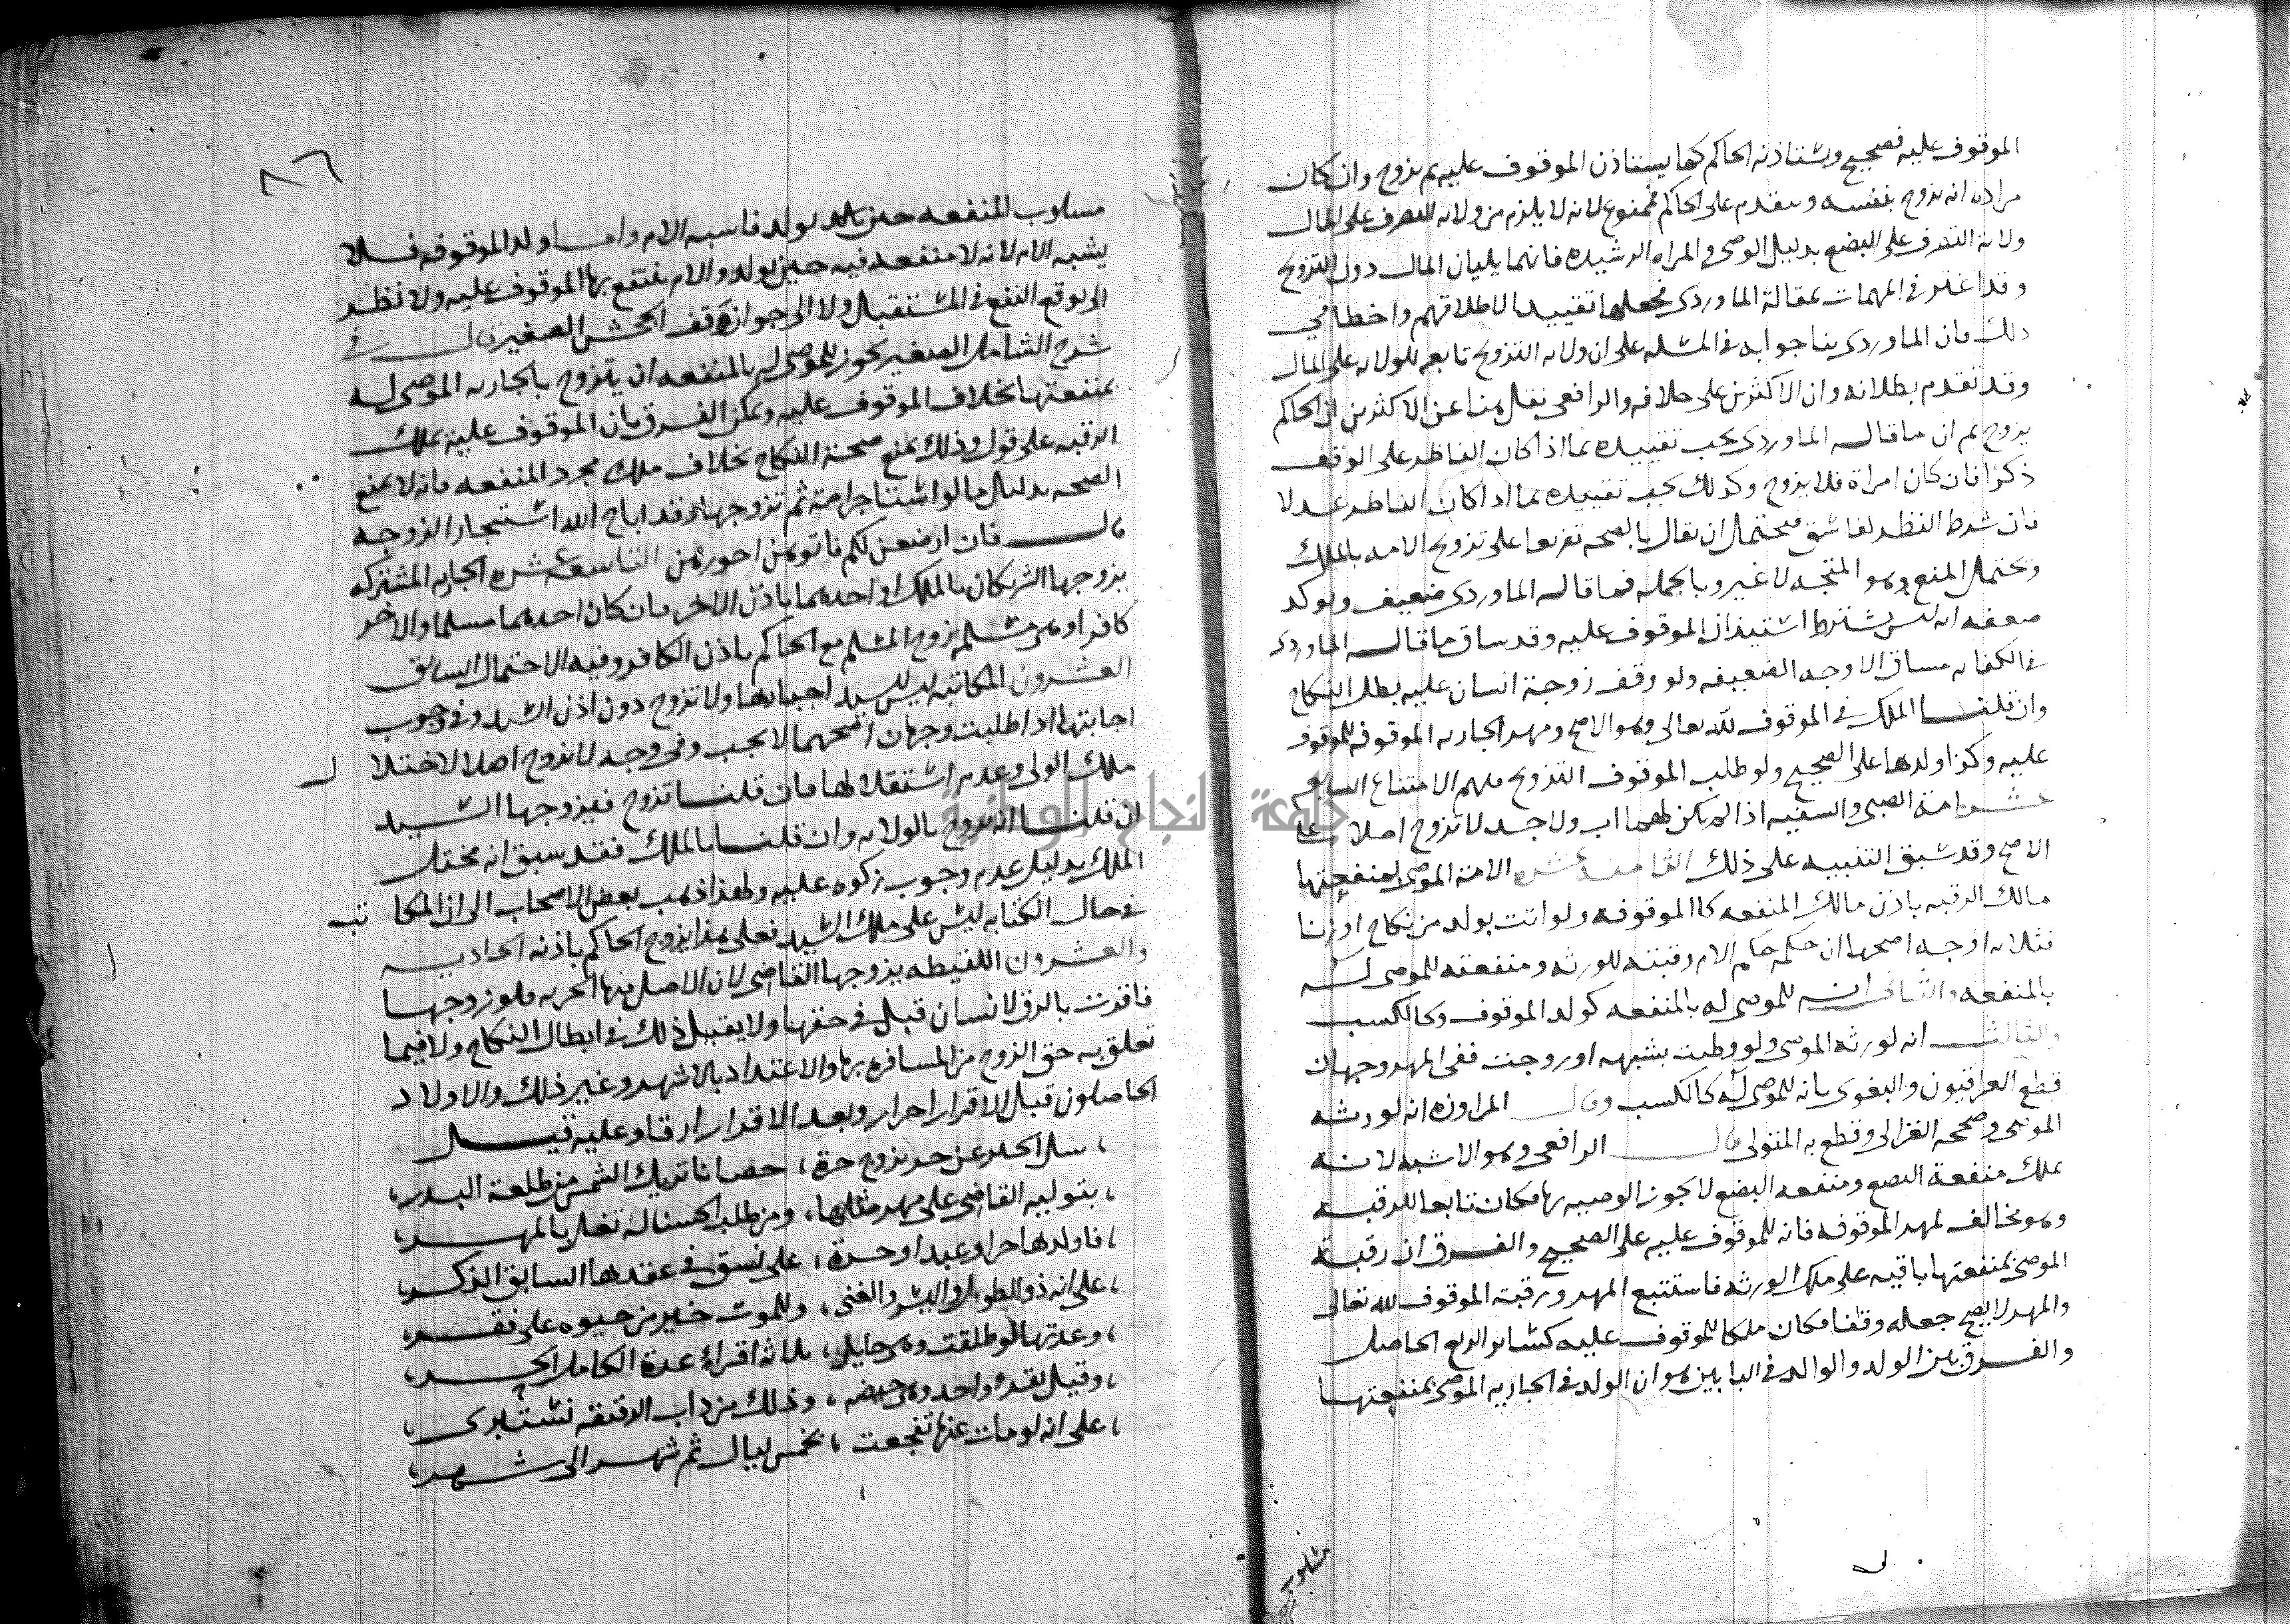 الموقوف عليه فصحيح ويستاذنه الحاكم كما يستاذن الموقوف عليه ثم يزوج وان كان
مراده انه يزوج بنفسه ويتقدم على الحاكم فممنوع لانه لا يلزم من ولايه التصرف على المال
ولاية التصرف على البضع بدليل الوصى والمراه الرشيده فانهما يليان المال دون التزويج
وقد اغتر في المهمات بمقالة الماوردى فجعلها تقييدا لاطلاقهم واخطا في
ذلك فان الماوردى بنا جوابه في المسله على ان ولايه التزويج تابعه للولايه على المال
وقد تقدم بطلانه وان الاكثرين على خلافه والرافعى نقل هنا عن الاكثرين ان الحاكم
يزوج ثم ان ما قاله الماوردى يجب تقييده بما اذا كان الناظر على الوقف
ذكرا فان كان امراة فلا يزوج وكذلك يجب تقييده بما اذا كان الناظر عدلا
فان شرط النظر لفاسق فيحتمل ان يقال بالصحه تفريعا على تزويج الامه بالملك
ويحتمل المنع وهو المتجه لا غير وبالجمله فما قاله الماوردى ضعيف ويوكد
ضعفه انه ليس يشترط استيذان الموقوف عليه وقد ساق ما قاله الماوردى
في الكفايه مساق الاوجه الضعيفه ولو وقف زوجة انسان عليه بطل النكاح
وان قلنا الملك في الموقوف لله تعالى وهو الاصح ومهر الجاريه الموقوفه للموقوف
عليه وكذا ولدها على الصحيح ولو طلب الموقوف التزويج فلهم الامتناع السابع
عشر امة الصبى والسفيه اذا لم يكن لهما اب ولا جد لا تزوج اصلا على
الاصح وقد سبق التنبيه على ذلك الثامنه عشره الامة الموصى بمنفعتها
مالك الرقبه باذن مالك المنفعه كالموقوفه ولو اتت بولد من نكاح او زنا
فثلاثه اوجه اصحها ان حكمه حكم الام رقبته للورثه ومنفعته للموصى له
بالمنفعه والثانى انه للموصى له بالمنفعه كولد الموقوف وكالكسب
والثالث انه لورثه الموصى ولو وطيت بشبهه او زوجت ففى المهر وجهان
قطع العراقيون والبغوى بانه للموصى له كالكسب وقال المراوزه انه لورثه
الموصى وصححه الغزالى وقطع به المتولى قال الرافعى وهو الاشبه لانه
ملك منفعة البضع ومنفعه البضع لا يجوز الوصيه بها فكان تابعا للرقبه
وهو مخالف لمهر الموقوفه فانه للموقوف عليه على الصحيح والفرق ان رقبة
الموصى بمنفعتها باقيه على ملك الورثه فاستتبع المهر ورقبة الموقوف لله تعالى
والمهر لا يصح جعله وقفا فكان ملكا للموقوف عليه كسائر الريع الحاصل
والفرق بين الولد والوالد في البابين هو ان الولد في الجاريه الموصى بمنفعتها
مسلوب
٨٦
مسلوب المنفعه حين يولد فاشبه الام واما ولد الموقوفه فلا
يشبه الام لانه لا منفعه فيه حين يولد والام ينتفع بها الموقوف عليه ولا نظر
الى توقع النفع في المستقبل ولا الى جواز وقف الجحش الصغير قال في
شرح الشامل الصغير يجوز للموصى له بالمنفعه ان يتزوج بالجاريه الموصى له
بمنفعتها بخلاف الموقوف عليه ويمكن الفرق بان الموقوف عليه يملك
الرقبه على قول وذلك يمنع صحة النكاح بخلاف ملك مجرد المنفعه فانه لا يمنع
الصحه بدليل ما لو استاجر امة ثم تزوجها وقد اباح الله استيجار الزوجه
قال فان ارضعن لكم فاتوهن اجورهن التاسعه عشره الجاريه المشتركه
يزوجها الشريكان بالملك او احدهما باذن الاخر فان كان احدهما مسلما والاخر
كافرا وهى مسلمه يزوج المسلم مع الحاكم باذن الكافر وفيه الاحتمال السابق
العشرون المكاتبه ليس للسيد اجبارها ولا تزوج دون اذن السيد وفى وجوب
اجابتها اذا طلبت وجهان اصحهما لا يجب وفى وجه لا تزوج اصلا لاختلال
ملك المولى وعدم استقلالها فان قلنا تزوج فيزوجها السيد
ان قلنا انه يزوج بالولايه وان قلنا بالملك فقد سبق انه مختل
الملك بدليل عدم وجوب زكوه عليه ولهذا ذهب بعض الاصحاب الى ان المكاتب
في حال الكتابه ليس على ملك السيد فعلى هذا يزوج الحاكم باذنه الحاديه
والعشرون اللقيطه يزوجها القاضى لان الاصل فيها الحريه فلو زوجها
فاقرت بالرق لانسان قبل في حقها ولا يقبل ذلك في ابطال النكاح ولا فيما
تعلق به حق الزوج من المسافره بها والاعتداد بالاشهر وغير ذلك والاولاد
الحاصلون قبل الاقرار احرار وبعد الاقرار ارقا وعليه قيل
سل الحبر عن حر تزوج حرة، حصانا تريك الشمس من طلعة البدر،
بتوليه القاضى على مهر مثلها، ومن طلب الحسنا له تغل بالمهر،
فاولدها حرا وعبدا وحرة، على نسق في عقدها السابق الذكر،
على انه ذو الطول واليسر والغنى، وللموت خير من حيوه على فقر،
وعدتها لو طلقت وهى حايل، ثلاثه اقراء عدة الكامل الحر،
وقيل بقرء واحد وهى حيضه، وذلك من داب الرقيقه تستبرى،
على انه لو مات عنها تفجعت، بخمس ليال ثم شهر الى شهر،